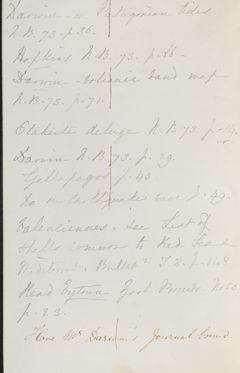 Darwin on Patagonian tides
N.B. 73. p. 26.
Hopkins N.B. 73. p. 66 -
Darwin - volcanic band map
N.B. 73. p. 71.
Otaheite deluge N.B. 73. p.
Darwin N.B. 73. p. 29.
Gallapagos p. 40.
Do on earthquakes p. 49.
Valenciennes. See List of
shells common to Red Sea &
Mediterrn. Bulletn. T. 8. p. 148
Read Eyton Zool. Proceeds. No 50.
p. 23.
Have Mr Darwin's Journal bound.